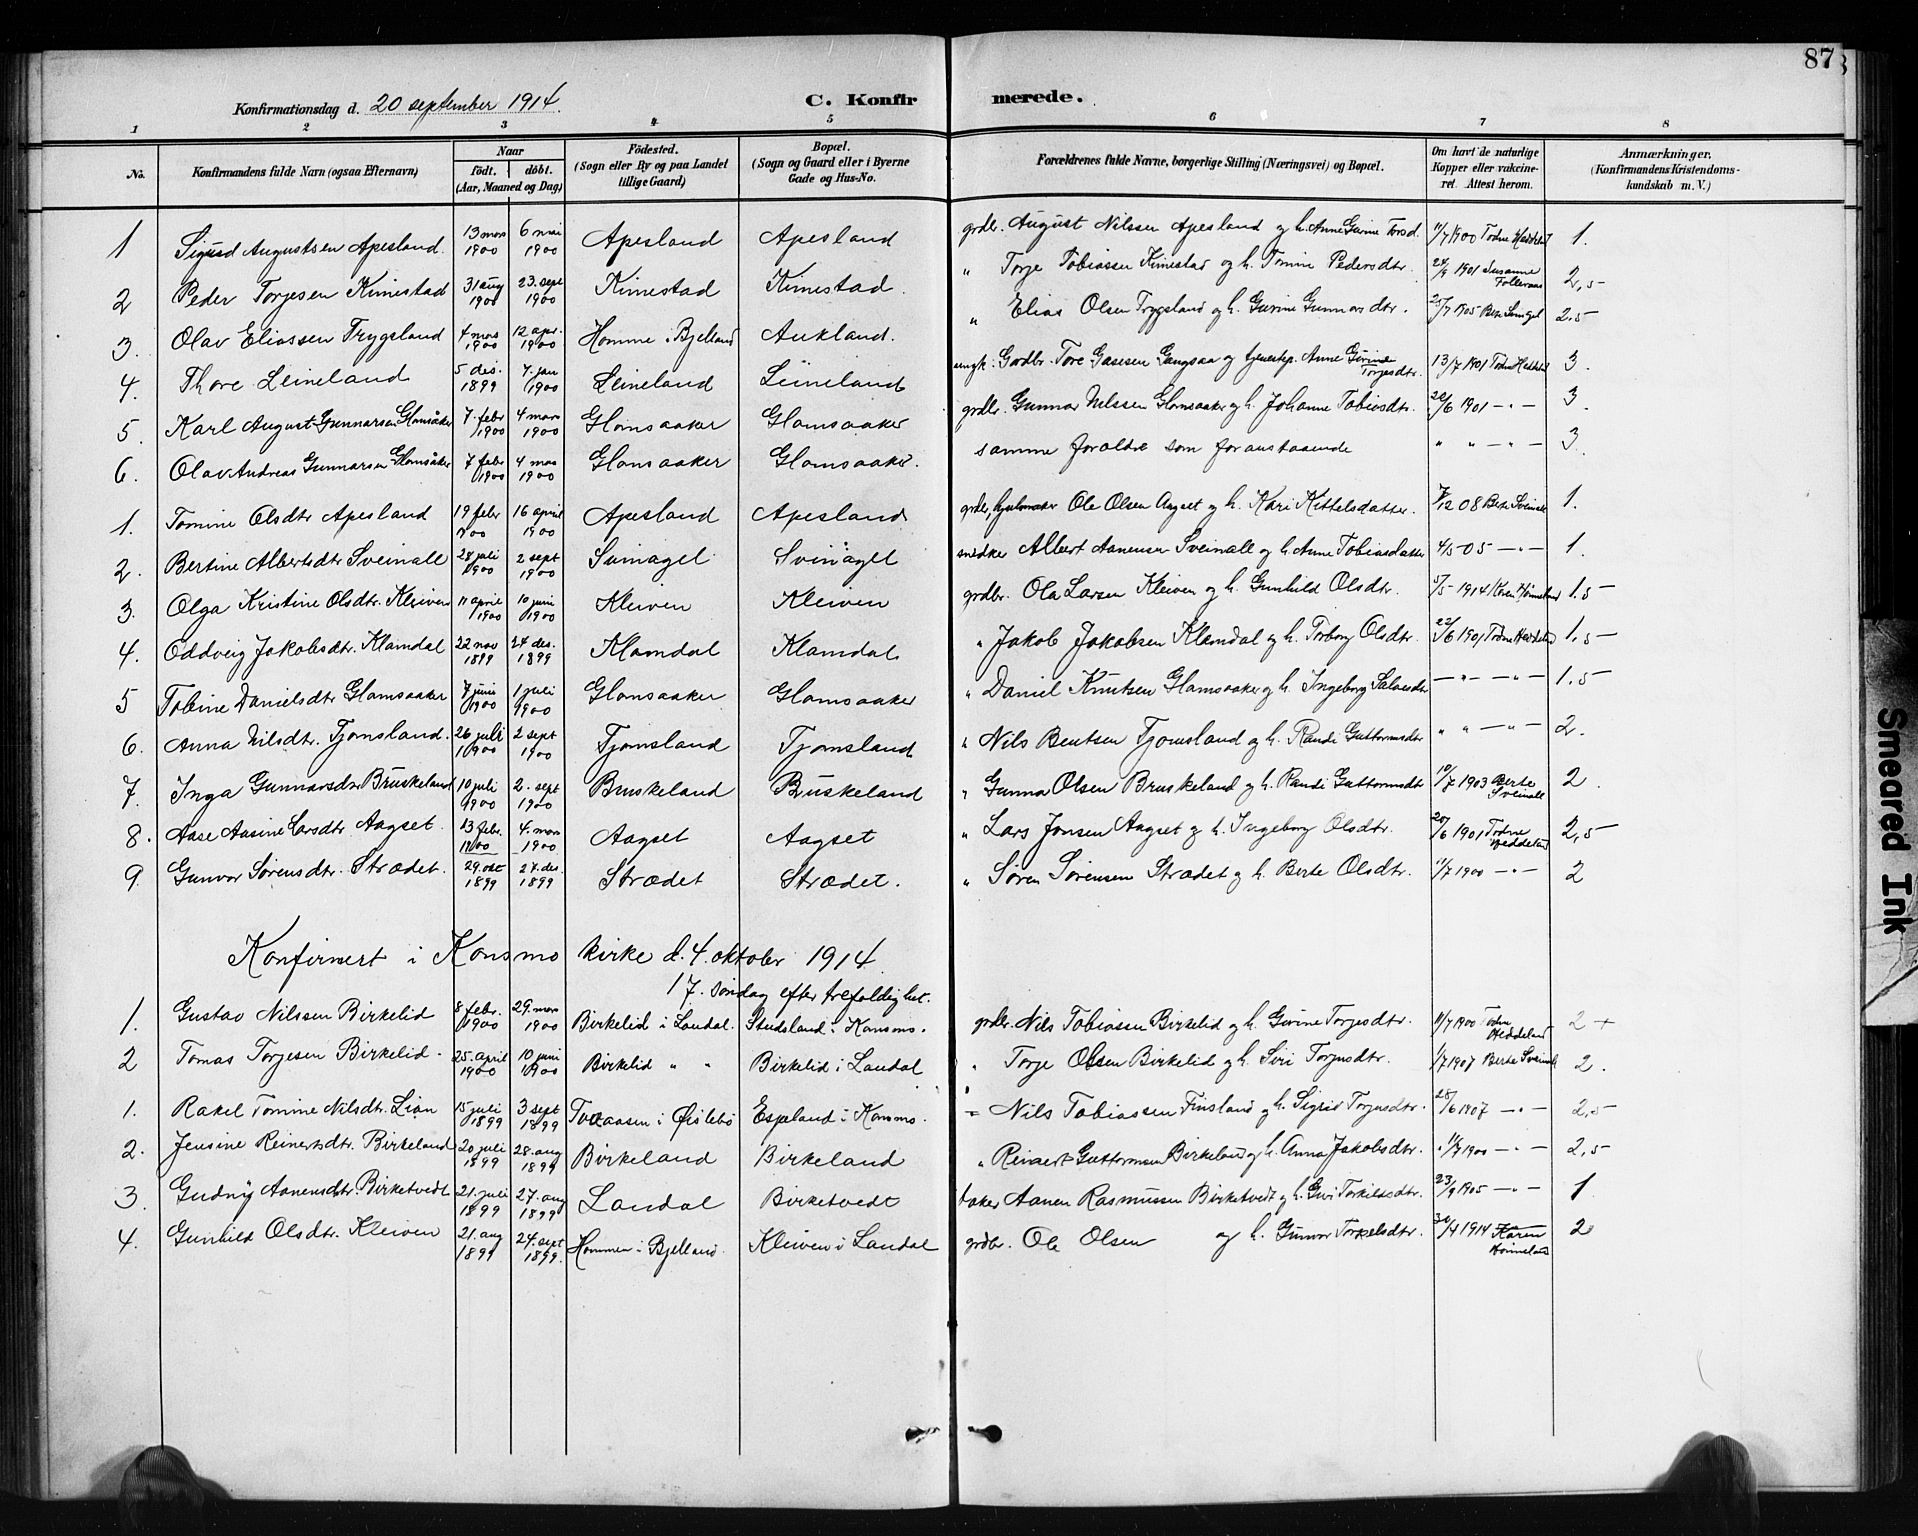 87
Konfirmationsdag d. 20 september 1914.
C. Konfirmerede.
1 2 3 4 5 6 7 8
No.
Konfirmandens fulde Navn (ogsaa Efternavn)
Naar
født. døbt.
(Aar, Maaned og Dag)
Fødested.
(Sogn eller By og paa Landet tillige Gaard)
Bopæl.
(Sogn og Gaard eller i Byerne Gade og Hus-No.
Forældrenes fulde Navne, borgerlige Stilling (Næringsvei) og Bopæl.
Om havt de naturlige Kopper eller vakcineret. Attest herom.
Anmærkninger.
(Konfirmandens Kristendomskundskab m. V.)
1 Sigurd Augustsen Apesland. 13 mars 1900 6 mai 1900 Apesland Apesland grdbr. August Nilssen Apesland og h. Anne Gurine Torsd. 11/7 1900 1.
2 Peder Torjesen Kimestad 31 aug 1900 23. sept 1900 Kimestad Kimestad. " Torje Tobiassen Kimestad og h. Tomine Pedersdtr. 24/9 1901 Susanne 2,5
3. Olav Eliassen Trygsland 4 mars 1900 12 apr. 1900 Homme i Bjelland Aukland. " Elias Olsen Trygsland og h. Gurine Gunnarsdtr. 25/7 1905 2.5
4. Thore Leineland 5 des. 1899 7 jan 1900 Leineland Leineland ungk. Gaardbr. Tore Gasesen Gangsaa og tjenestep. Anne Gurine Torjesdtr. 13/7 1901 3.
5. Karl August Gunnarsen Glomsåker 7 febr 1900 4 mars 1900 Glomsaaker Glomsaaker grdbr. Gunnar Nilssen Glomsaaker og h. Johanne Tobiasdtr. 22/6 1901 — " — 3
6. Olav Andreas Gunnarsen Glomsåker 7 febr 1900 4 mars 1900 Glomsaaker Glomsaaker. samme foraldre som foranstaaende " " — " — 3
1. Tomine Olsdtr Apesland 19 febr 1900 16 april 1900 Apesland Apesland grdbr, hjulmaker Ole Olsen Aagset og h. Kari Kittelsdatter. 7/12 08 Berte Sveinall 1.
2. Bertine Albertsdtr Sveinall 28 juli 1900 2 sept 1900 Svinagel Svinagel snedker Albert Aanensen Sveinall og h. Anne Tobiasdatter 4/5 05 — " — 1.
3. Olga Kristine Olsdtr. Kleiven 11 april 1900 10 juni 1900 Kleiven Kleiven grdbr. Ola Larsen Kleiven og h. Gunhild Olsdtr. 5/5 1914 Karen Hønneland 1.5
4. Oddveig Jakobsdtr. Klamdal 22 nov 1899 24 des. 1899 Klamdal Klamdal " Jakob Jakobsen Klamdal og h. Torborg Olsdtr. 22/6 1901 1.5
5 Tobine Danielsdtr Glomsaaker 7 juni 1900 1 juli 1900 Glomsaaker Glomsaaker " Daniel Knutsen Glomsaaker og h. Ingeborg Salvesdtr — " — — " — 1.5
6. Anna Nilsdtr. Tjomsland. 26 juli 1900 2 sept 1900 Tjomsland Tjomsland " Nils Bentsen Tjomsland og h. Randi Guttormsdtr " " — " — 2.
7. Inga Gunnarsdtr Bruskeland 10 juli 1900 2. sept 1900 Bruskeland Buskeland " Gunna Olsen Bruskeland og h. Randi Guttormsdtr 10/7 1903 Berte Sveinall 2.
8. Aase Aasine Larsdtr. Aagset. 13 febr. 1900 4. mars 1900 Aagset Aagset " Lars Jonsen Aagset og h. Ingeborg Olsdtr. 20/6 1901 2,5
9. Gunvor Sørensdtr. Strædet. 29. okt 1899 27. des. 1899 Strædet Strædet. " Søren Sørensen Strædet og h. Berte Olsdtr. 11/7 1900 — " — 2
Konfirmert i Konsmo kirke d. 4. oktober 1914
17. søndag efter trefoldighet.
1. Gustav Nilssen Birkelid 8 febr. 1900 29. mars 1900 Birkelid i Laudal. Studsland i Konsmo. grdbr. Nils Tobiassen Birkelid og h. Gurine Torjesdtr. 11/7 1900 2 +
2 Tomas Torjesen Birkelid. 25. april 1900 10 juni 1900 Birkelid " " Birkelid i Laudal " Torje Olsen Birkelid og h. Siri Torjusdtr. 1/7 1907 Berte Sveinall 2.
1. Rakel Tomine Nilsdtr. Lian 15 juli 1899 3 sept 1899 i Øislebø Espeland i Konsmo. " Nils Tobiassen Finsland og h. Sigrid Torjusdtr. 25/6 1907 — " — 2,5
2. Jensine Reinertsdtr. Birkeland 20 juli 1899 28. aug 1899 Birkeland Birkeland " Reinert Guttormsen Birkeland og h. Anna Jakobsdtr. 11/7 1900 — " — 2,5
3. Gudny Aanensdtr. Birketvedt 21. juli 1899 27. aug 1899 Laudal Birketvedt baker Aanen Rasmussen Birketvedt og h. Guri Torkildsdtr. 23/9 1905 — " — 1
4. Gunhild Olsdtr. Kleiven 21. aug 1899 24. sept 1899. Hommen i Bjelland. Kleiven i Laudal grdbr. Ole Olsen og h. Gunvor Torkelsdtr. 30/4 1914 Karen Hønneland 2
Smeared Ink